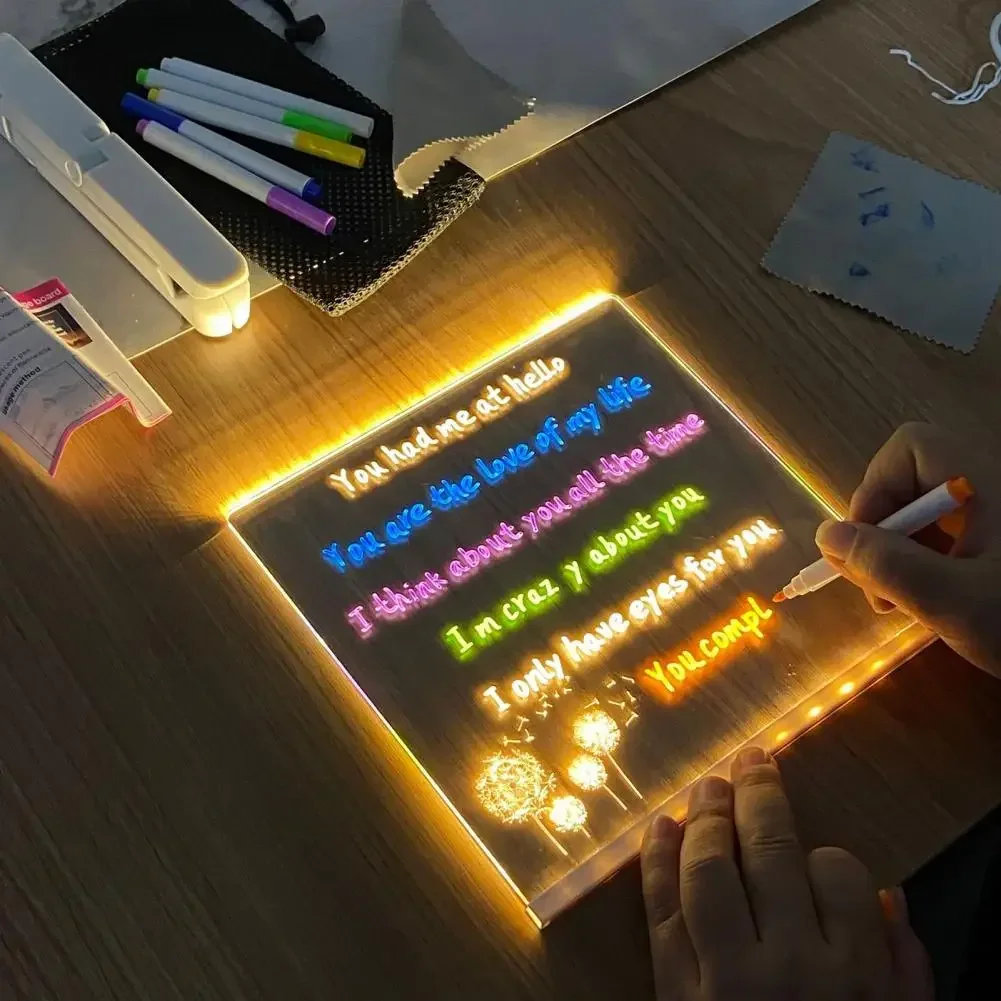 You had me at hello
You are the love of my life
I think about you all the time
I'm craz y about you
I only have eyes for you
You compl
board
usage method